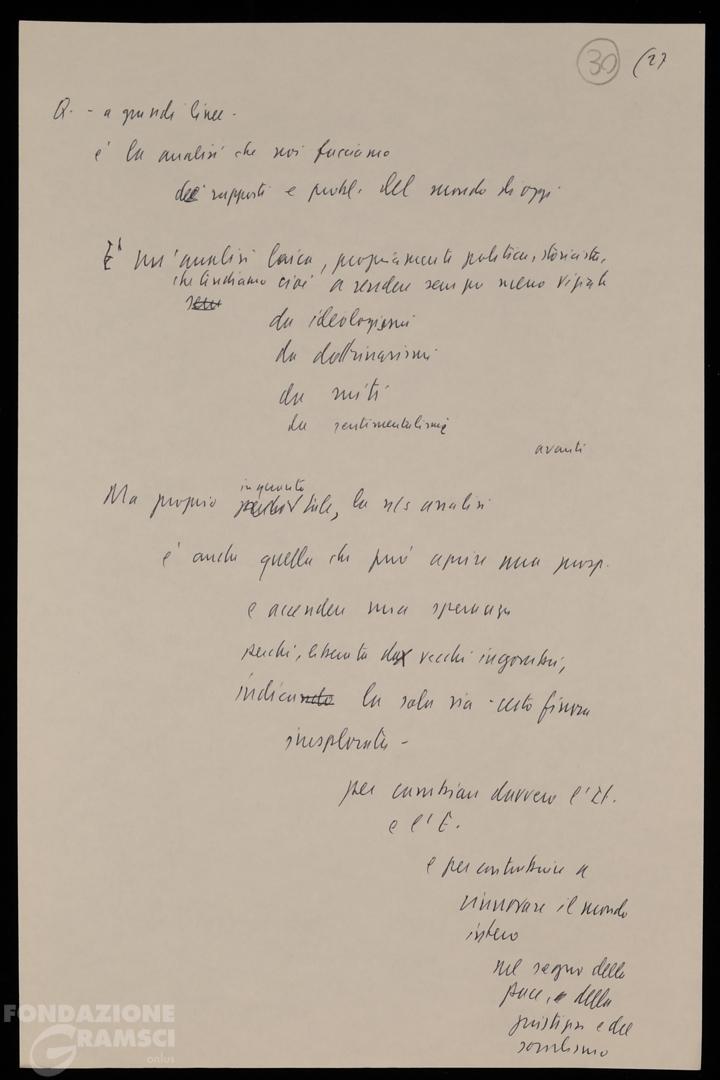 30 (27
Q. - a grandi linee -
è la analisi che noi facciamo
dei rapporti e probl. del mondo di oggi
È un'analisi laica, propriamente politica, storicista,
che tendiamo cioè a rendere sempre meno viziata
da ideologismi
da dottrinarismi
da miti
da sentimentalismi
avanti
in quanto
Ma proprio tale, la n/s analisi
è anche quella che può aprire una prosp.
e accendere una speranza
perché, liberata da vecchi ingombri,
indica la sola via - certo finora
inesplorata -
per cambiare davvero l'It.
e l'E.
e per contribuire a
rinnovare il mondo
intero
nel segno della
pace, della
giustizia e del
socialismo
FONDAZIONE
GRAMSCI
onlus